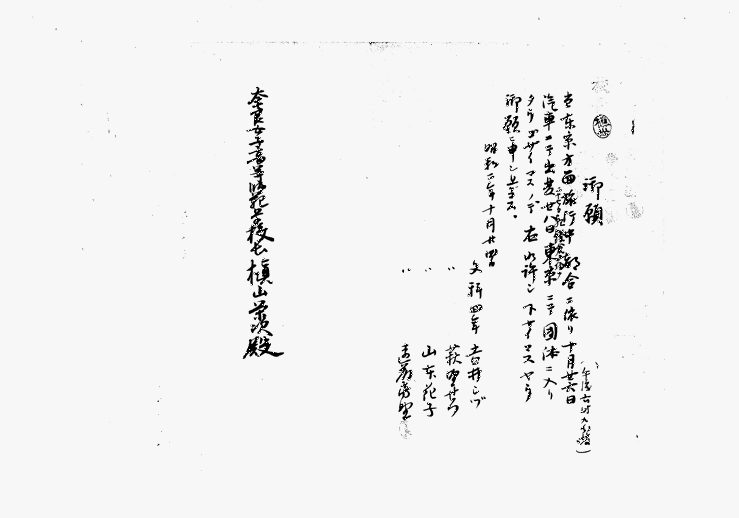 御願
吉東京方面旅行中都合ニ依リ十月廿六日
(午后六時九分発)
汽車ニテ出発廿八日東京ニテ団体ニ入リ
タウゴザイマスノデ右御許シ下サイマスヤウ
御願ヒ申シ上ゲマス。
昭和二年十月廿四日
文科四年 吉井シヅ
〃 荻野せつ
〃 山本花子
〃 遠藤
奈良女子高等師範学校長槇山栄次殿